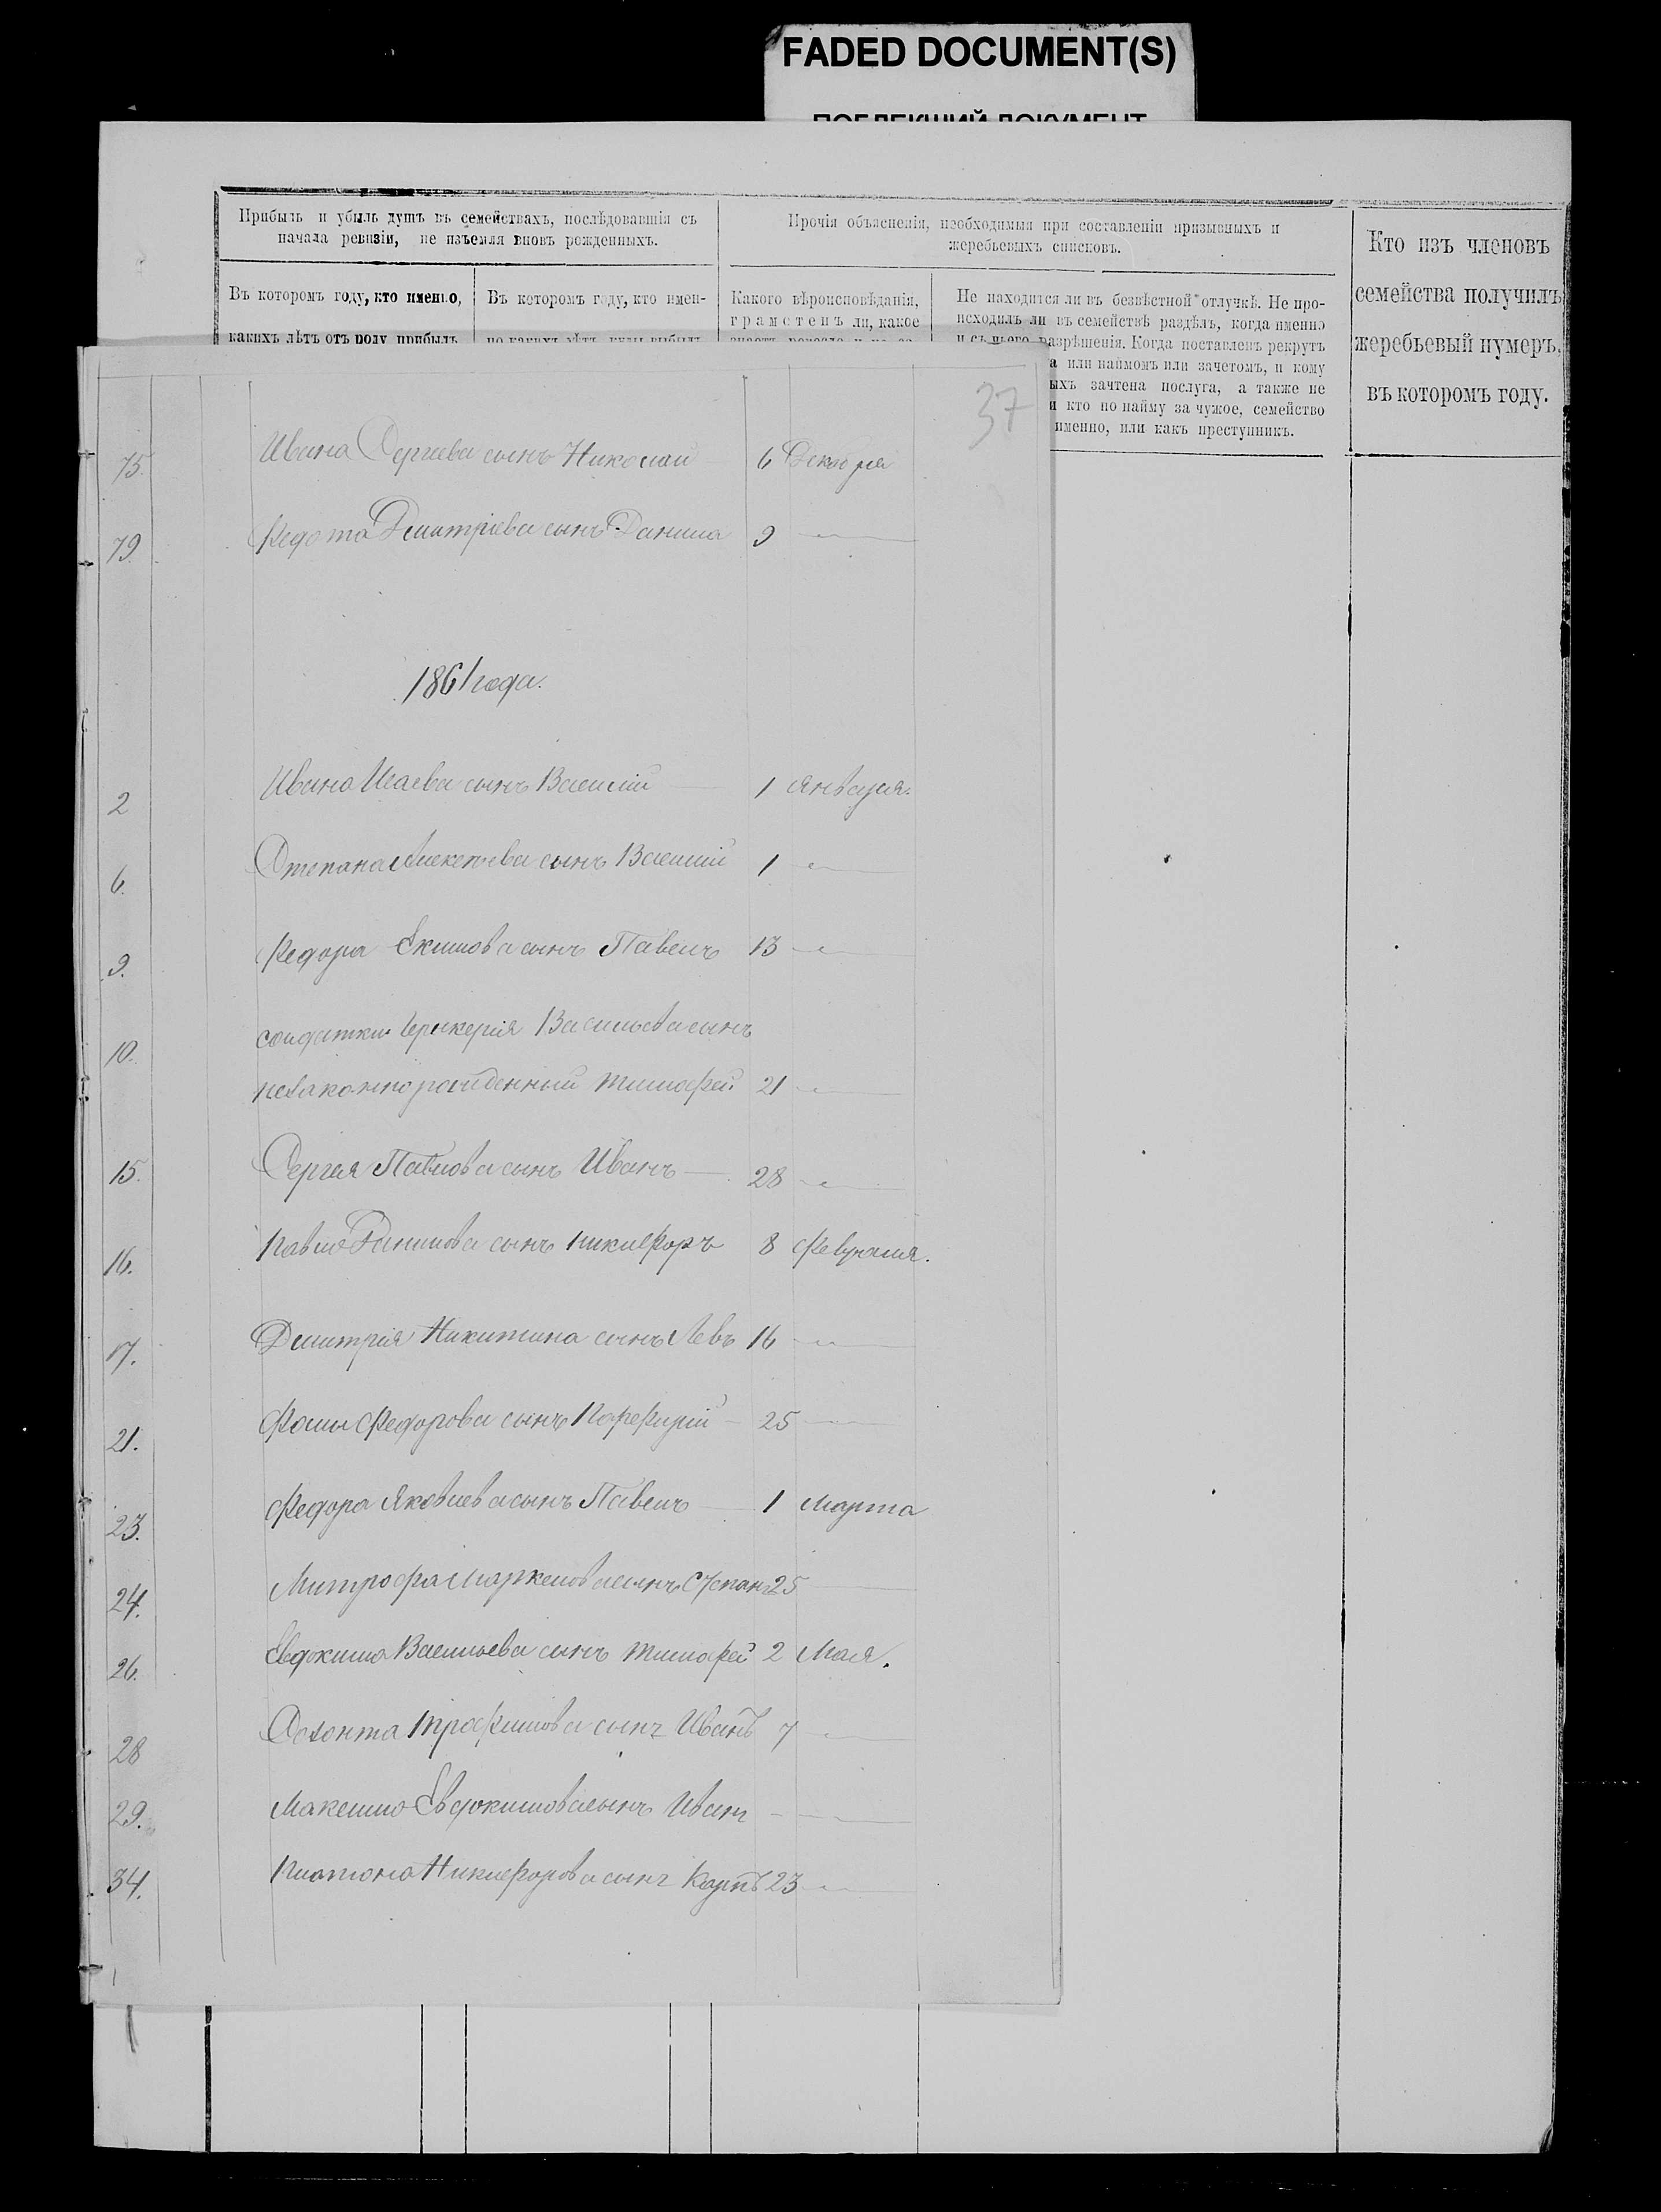 FADED DOCUMENT(S)
ПОБЛЕКШИЙ ДОКУМЕНТ
Прибыль и убыль душъ въ семействахъ, послѣдовавшія съ
начала ревизіи, не изъемля вновь рожденныхъ.
Прочія объясненія, необходимыя при составленіи призывныхъ и
жеребьевыхъ списковъ.
Кто изъ членовъ
семейства получилъ
жеребьевый нумеръ,
въ которомъ году.
Въ которомъ году, кто именно,
каких­ъ лѣтъ отъ роду прибылъ
Въ которомъ году, кто имен-
но какихъ лѣтъ, куда выбылъ
Какого вѣроисповѣданія,
грамотенъ ли, какое
Не находится ли въ безвѣстной отлучкѣ. Не про-
исходилъ ли въ семействѣ раздѣлъ, когда именно
и съ чьего разрѣшенія. Когда поставленъ рекрутъ
а или наймомъ или зачетомъ, и кому
ыхъ зачтена послуга, а также не
и кто по найму за чужое, семейство
именно, или какъ преступникъ.
37
75. Ивана Сергеева сынъ Николай 6 Декабря
79. Федота Дмитріева сынъ Данила 9
1861 года.
2 Ивана Исаева сынъ Василій 1 Января.
6. Степана Алексѣева сынъ Василій 1
9. Федора Екимова сынъ Павелъ 13
10. солдатки Васильева сынъ
незаконнорожденный Тимофей 21
15. Сергея Павлова сынъ Иванъ 28
16. Павла Данилова сынъ Никифоръ 8 Февраля.
17. Дмитрія Никитина сынъ Левъ 16
21. Фомы Федорова сынъ Порфирій 25
23. Федора Яковлева сынъ Павелъ 1 Марта
24. Митрофа Маркелова сынъ Степан 25
26. Евдокима Васильева сынъ Тимофей 2 Мая.
28 Трофимова сынъ Иванъ 7
29. Максима Евдокимова сынъ Иванъ
34. Платона Никифорова сынъ Карпъ 23